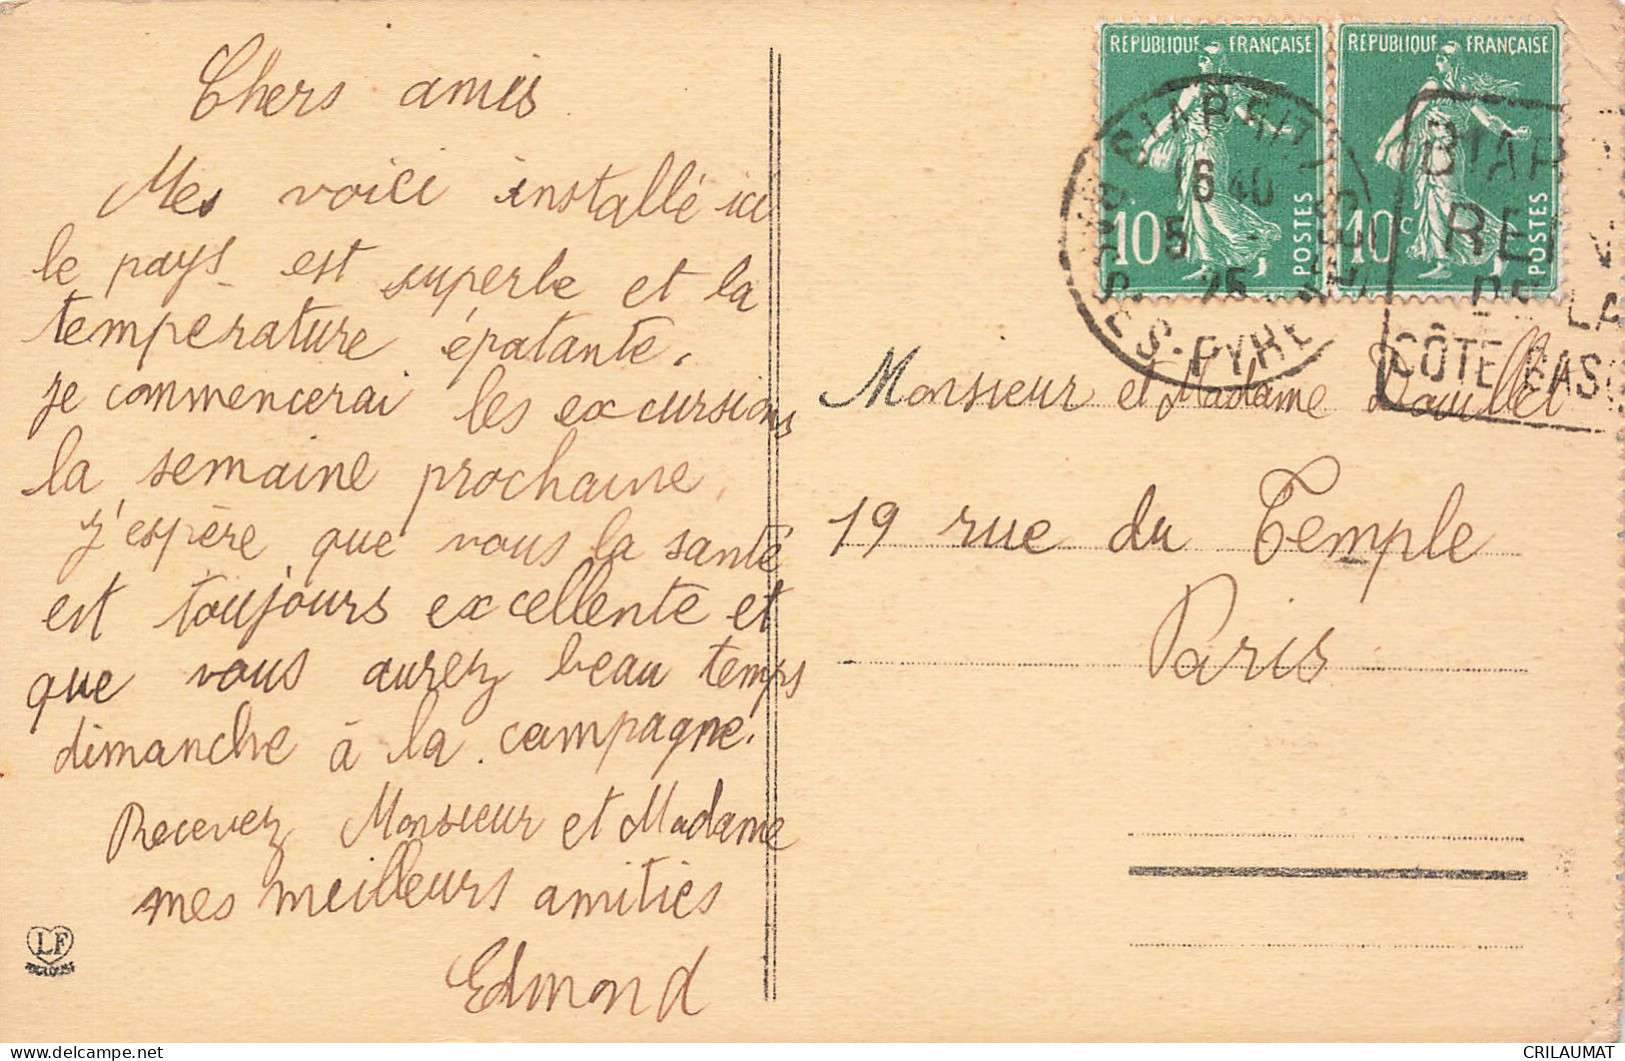 Chers amis
Me voici installé ici
le pays est superbe et la
temperature épatante.
Je commencerai les excursions
la semaine prochaine,
J'espère que vous la santé
est toujours excellente et
que vous aurez beau temps
dimanche à la campagne.
Recevez Monsieur et Madame
mes meilleurs amitiés
Edmond
LF
TOULOUSE
REPUBLIQUE FRANÇAISE
10
POSTES
REPUBLIQUE FRANÇAISE
10c
POSTES
BIARRITZ
16 40
5
25
BSES-PYRENEES
BIAR
REI
DE LA
CÔTE BASQ
Monsieur et Madame
19 rue du Temple
Paris
CRILAUMAT